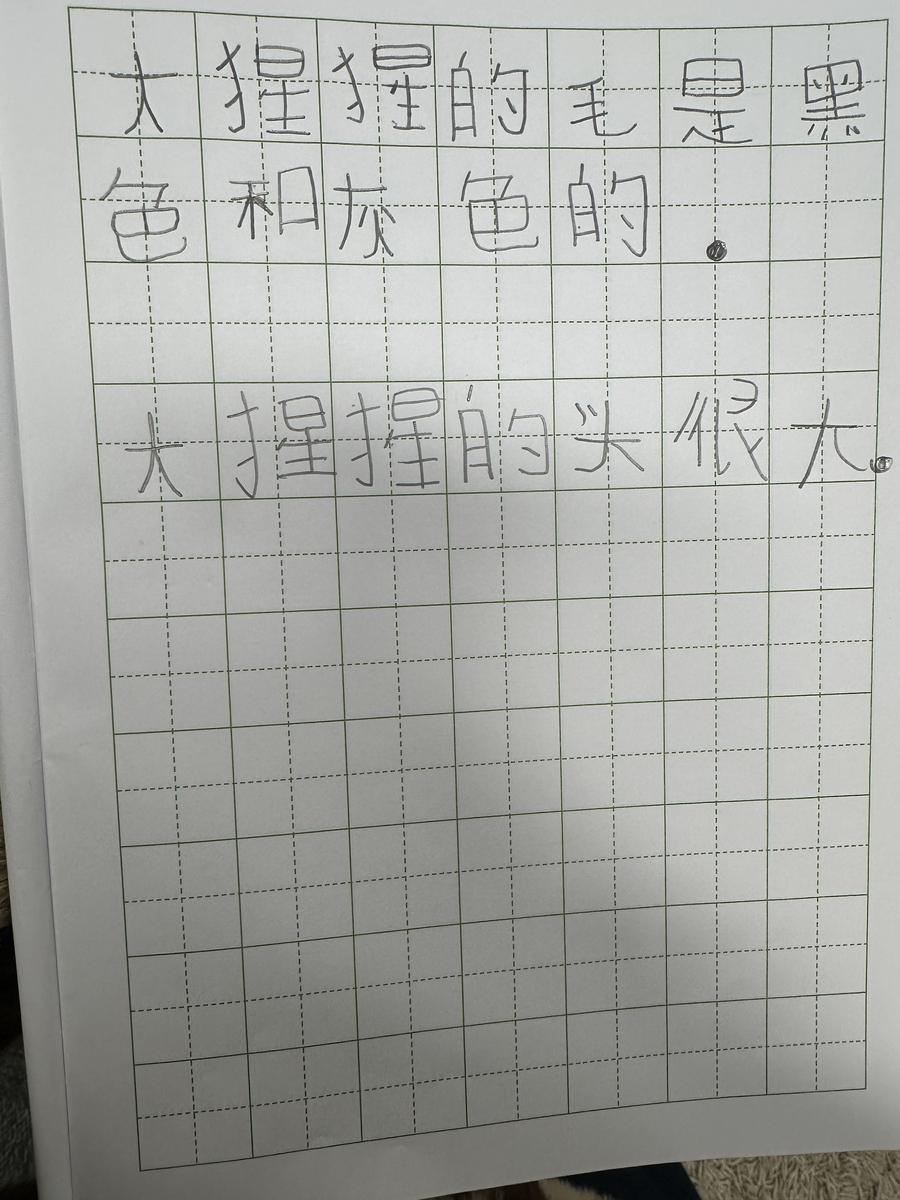 大猩猩的毛是黑
色和灰色的.
大猩猩的头很大.